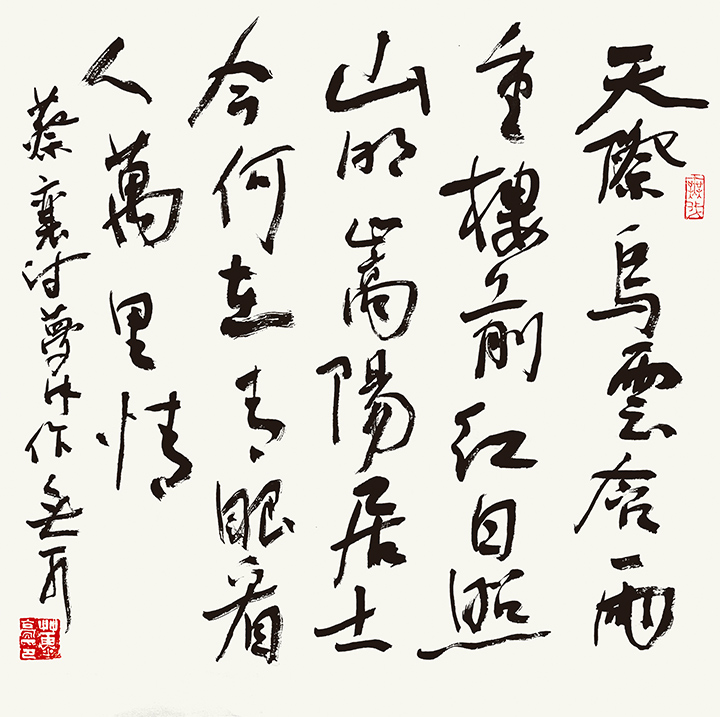 天際烏雲含雨
重樓前紅日照
山明嵩陽居士
今何在青眼看
人萬里情
蔡襄詩夢中作